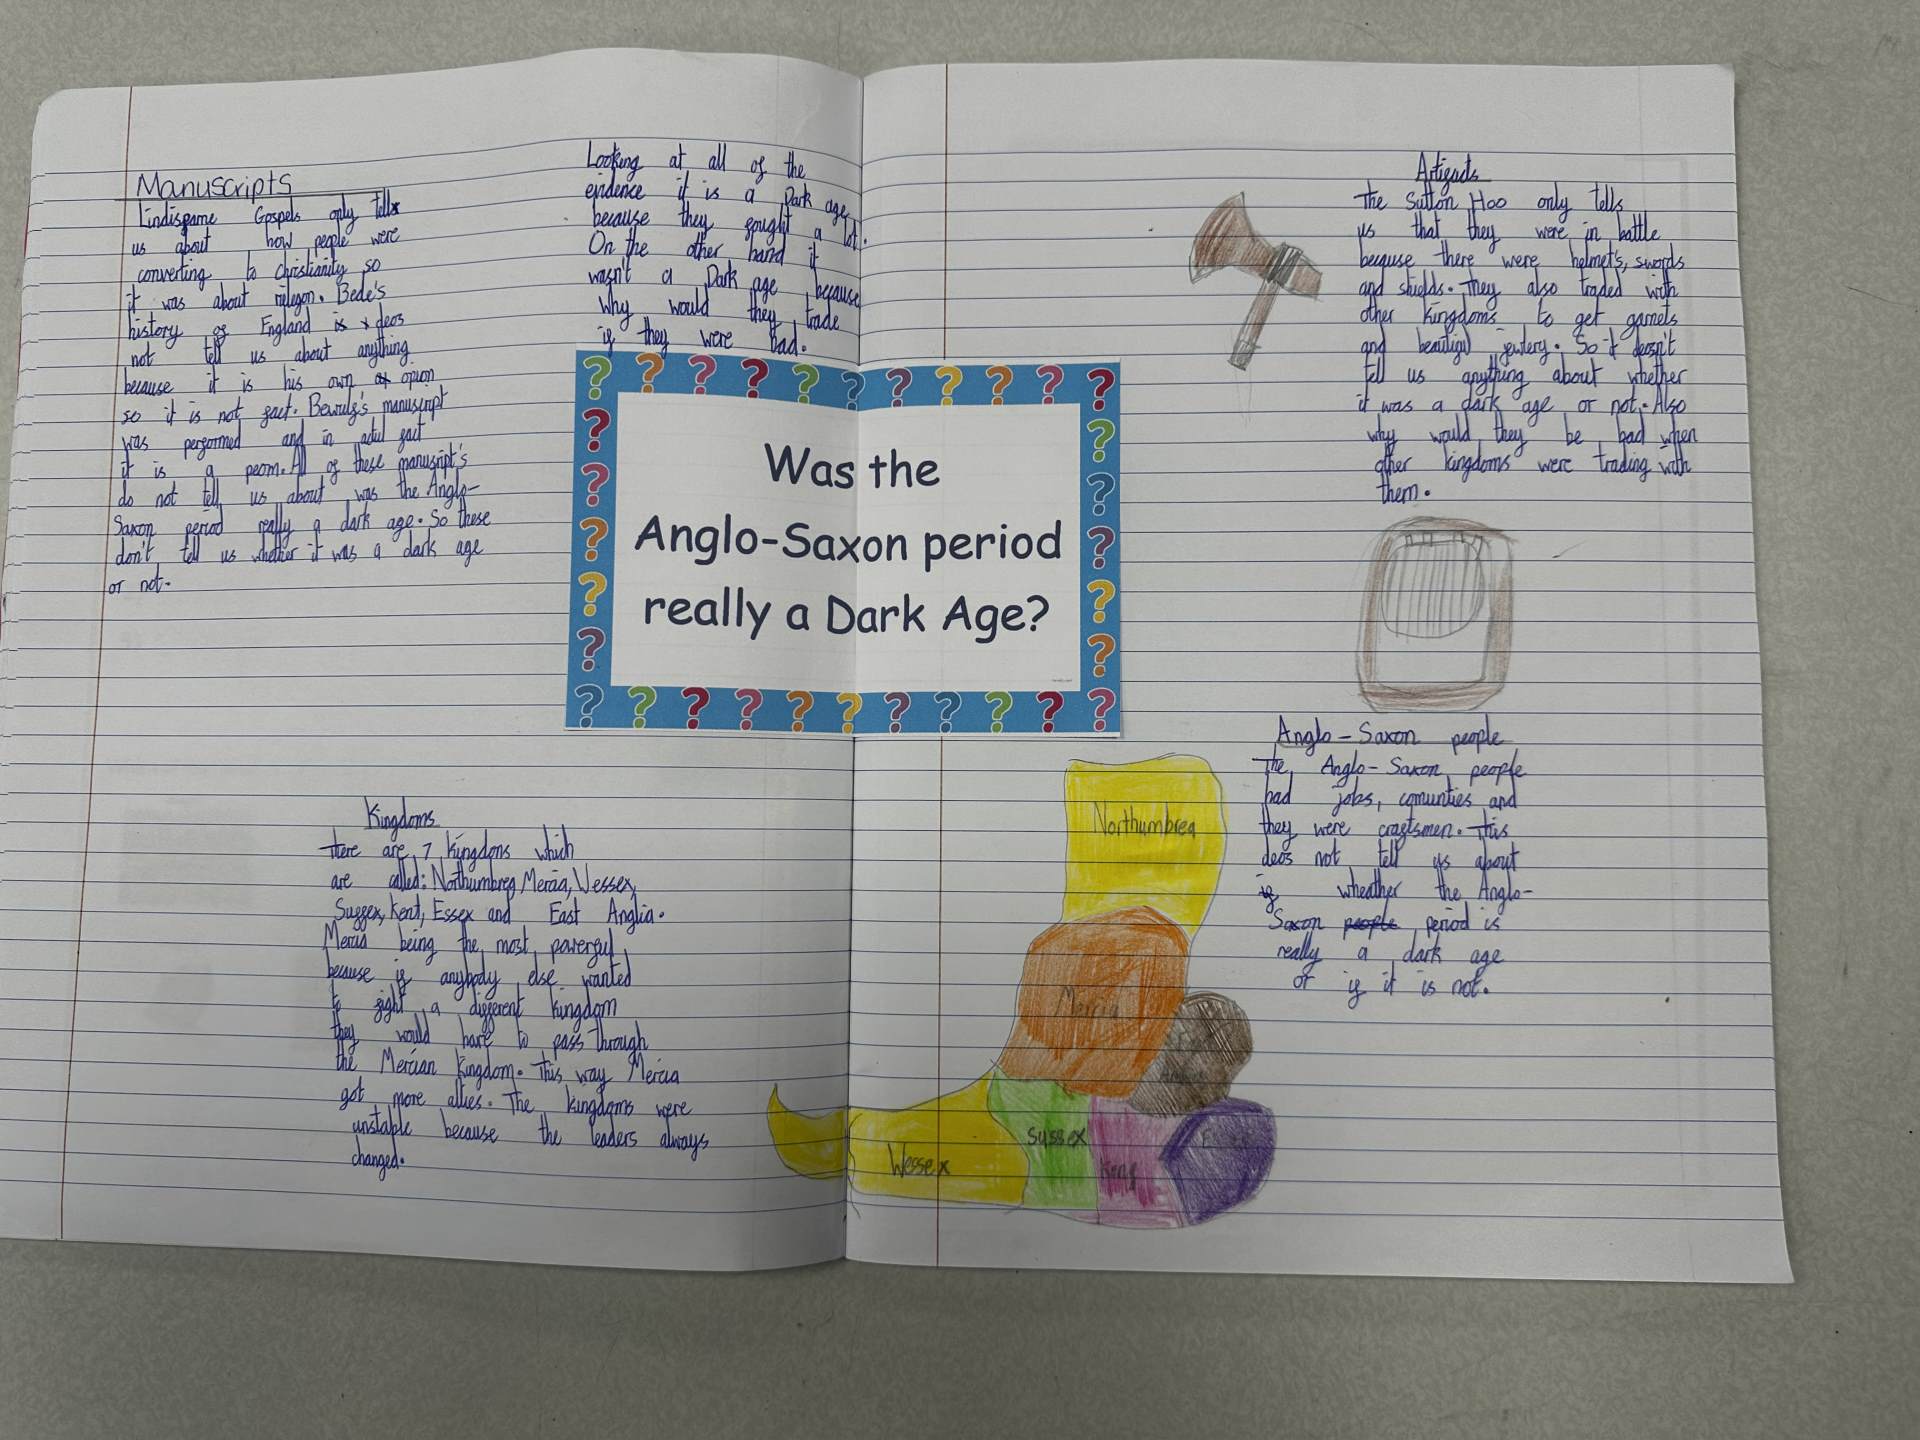 Manuscripts
Lindisfarne Gospels only tells
us about how people were
converting to christianity so
it was about relegon. Bede's
history of England is deos
not tell us about anything
because it is his own opion
so it is not fact. Bewulf's manuscript
was performed and in actul fact
it is a peom. All of these manuscript's
do not tell us about was the Anglo-
Saxon period really a dark age. So these
don't tell us whether it was a dark age
or not.
Looking at all of the
evidence it is a Dark age
because they fought a lot.
On the other hand it
wasn't a Dark age because
Why would they trade
if they were bad.
Was the
Anglo-Saxon period
really a Dark Age?
Kingdoms
There are 7 kingdons which
are called: Northumbrea, Mercia, Wessex,
Sussex, Kent, Essex and East Anglia.
Mercia being the most powerful
because if anybody else wanted
to fight a different kingdom
they would have to pass through
the Mercian kingdom. This way Mercia
got more allies. The kingdoms were
unstable because the leaders always
changed.
Artifacts
The Sutton Hoo only tells
us that they were in battle
because there were helmet's, swords
and shields. They also traded with
other kingdoms to get garnets
and beautiful jewlery. So it deosn't
tell us anything about whether
it was a dark age or not. Also
why would they be bad when
other kingdoms were trading with
them.
Anglo-Saxon people
The Anglo-Saxon people
had jobs, comunties and
they were craftsmen. This
deos not tell us about
if wheather the Anglo-
Saxon people period is
really a dark age
or if it is not.
Northumbrea
Mercia
Wessex
Sussex